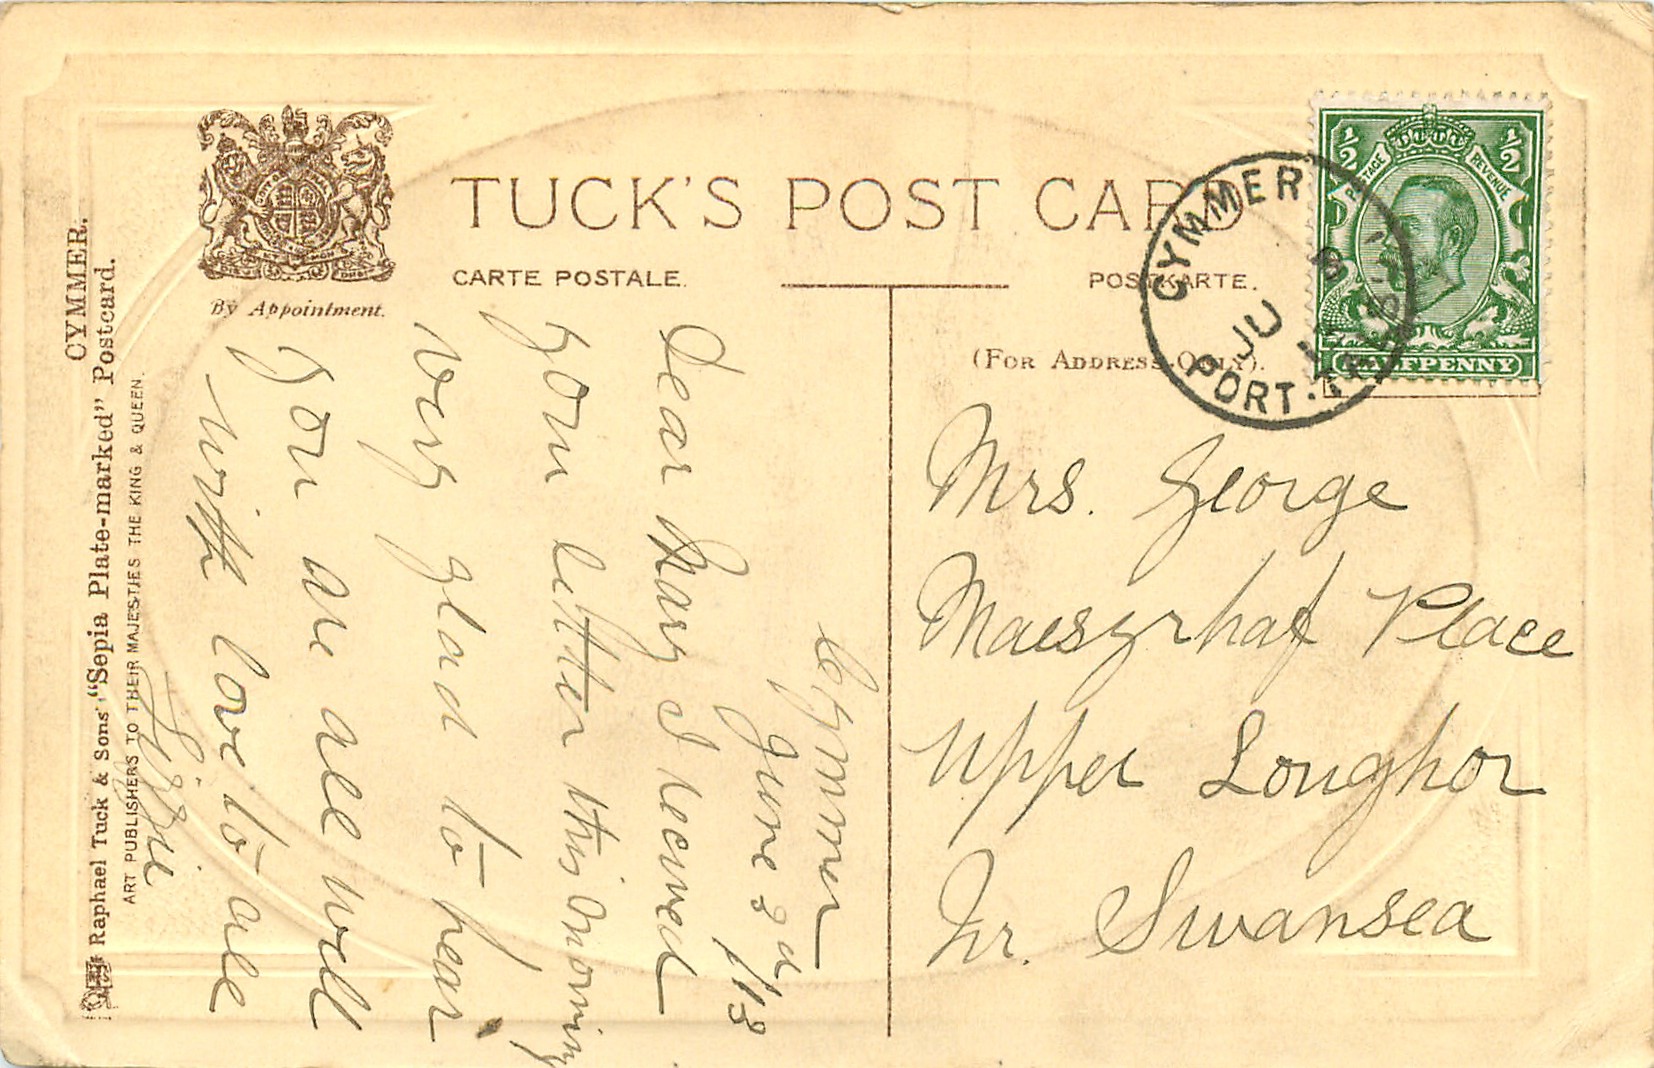 CYMMER.
Raphael Tuck & Sons' "Sepia Plate-marked" Postcard.
ART PUBLISHERS TO THEIR MAJESTIES THE KING & QUEEN.
By Appointment.
TUCK'S POST CARD
CARTE POSTALE.
POSTKARTE.
(FOR ADDRESS ONLY).
½ ½
POSTAGE REVENUE
HALFPENNY
CYMMER
JU
PORT-TALBOT
Cymmer
June 3rd /13
Dear Mary I received
your letter this morning
very glad to hear
you are all well
with love to all
Lizzie
Mrs. George
Maesyrhaf Place
Upper Loughor
Nr. Swansea